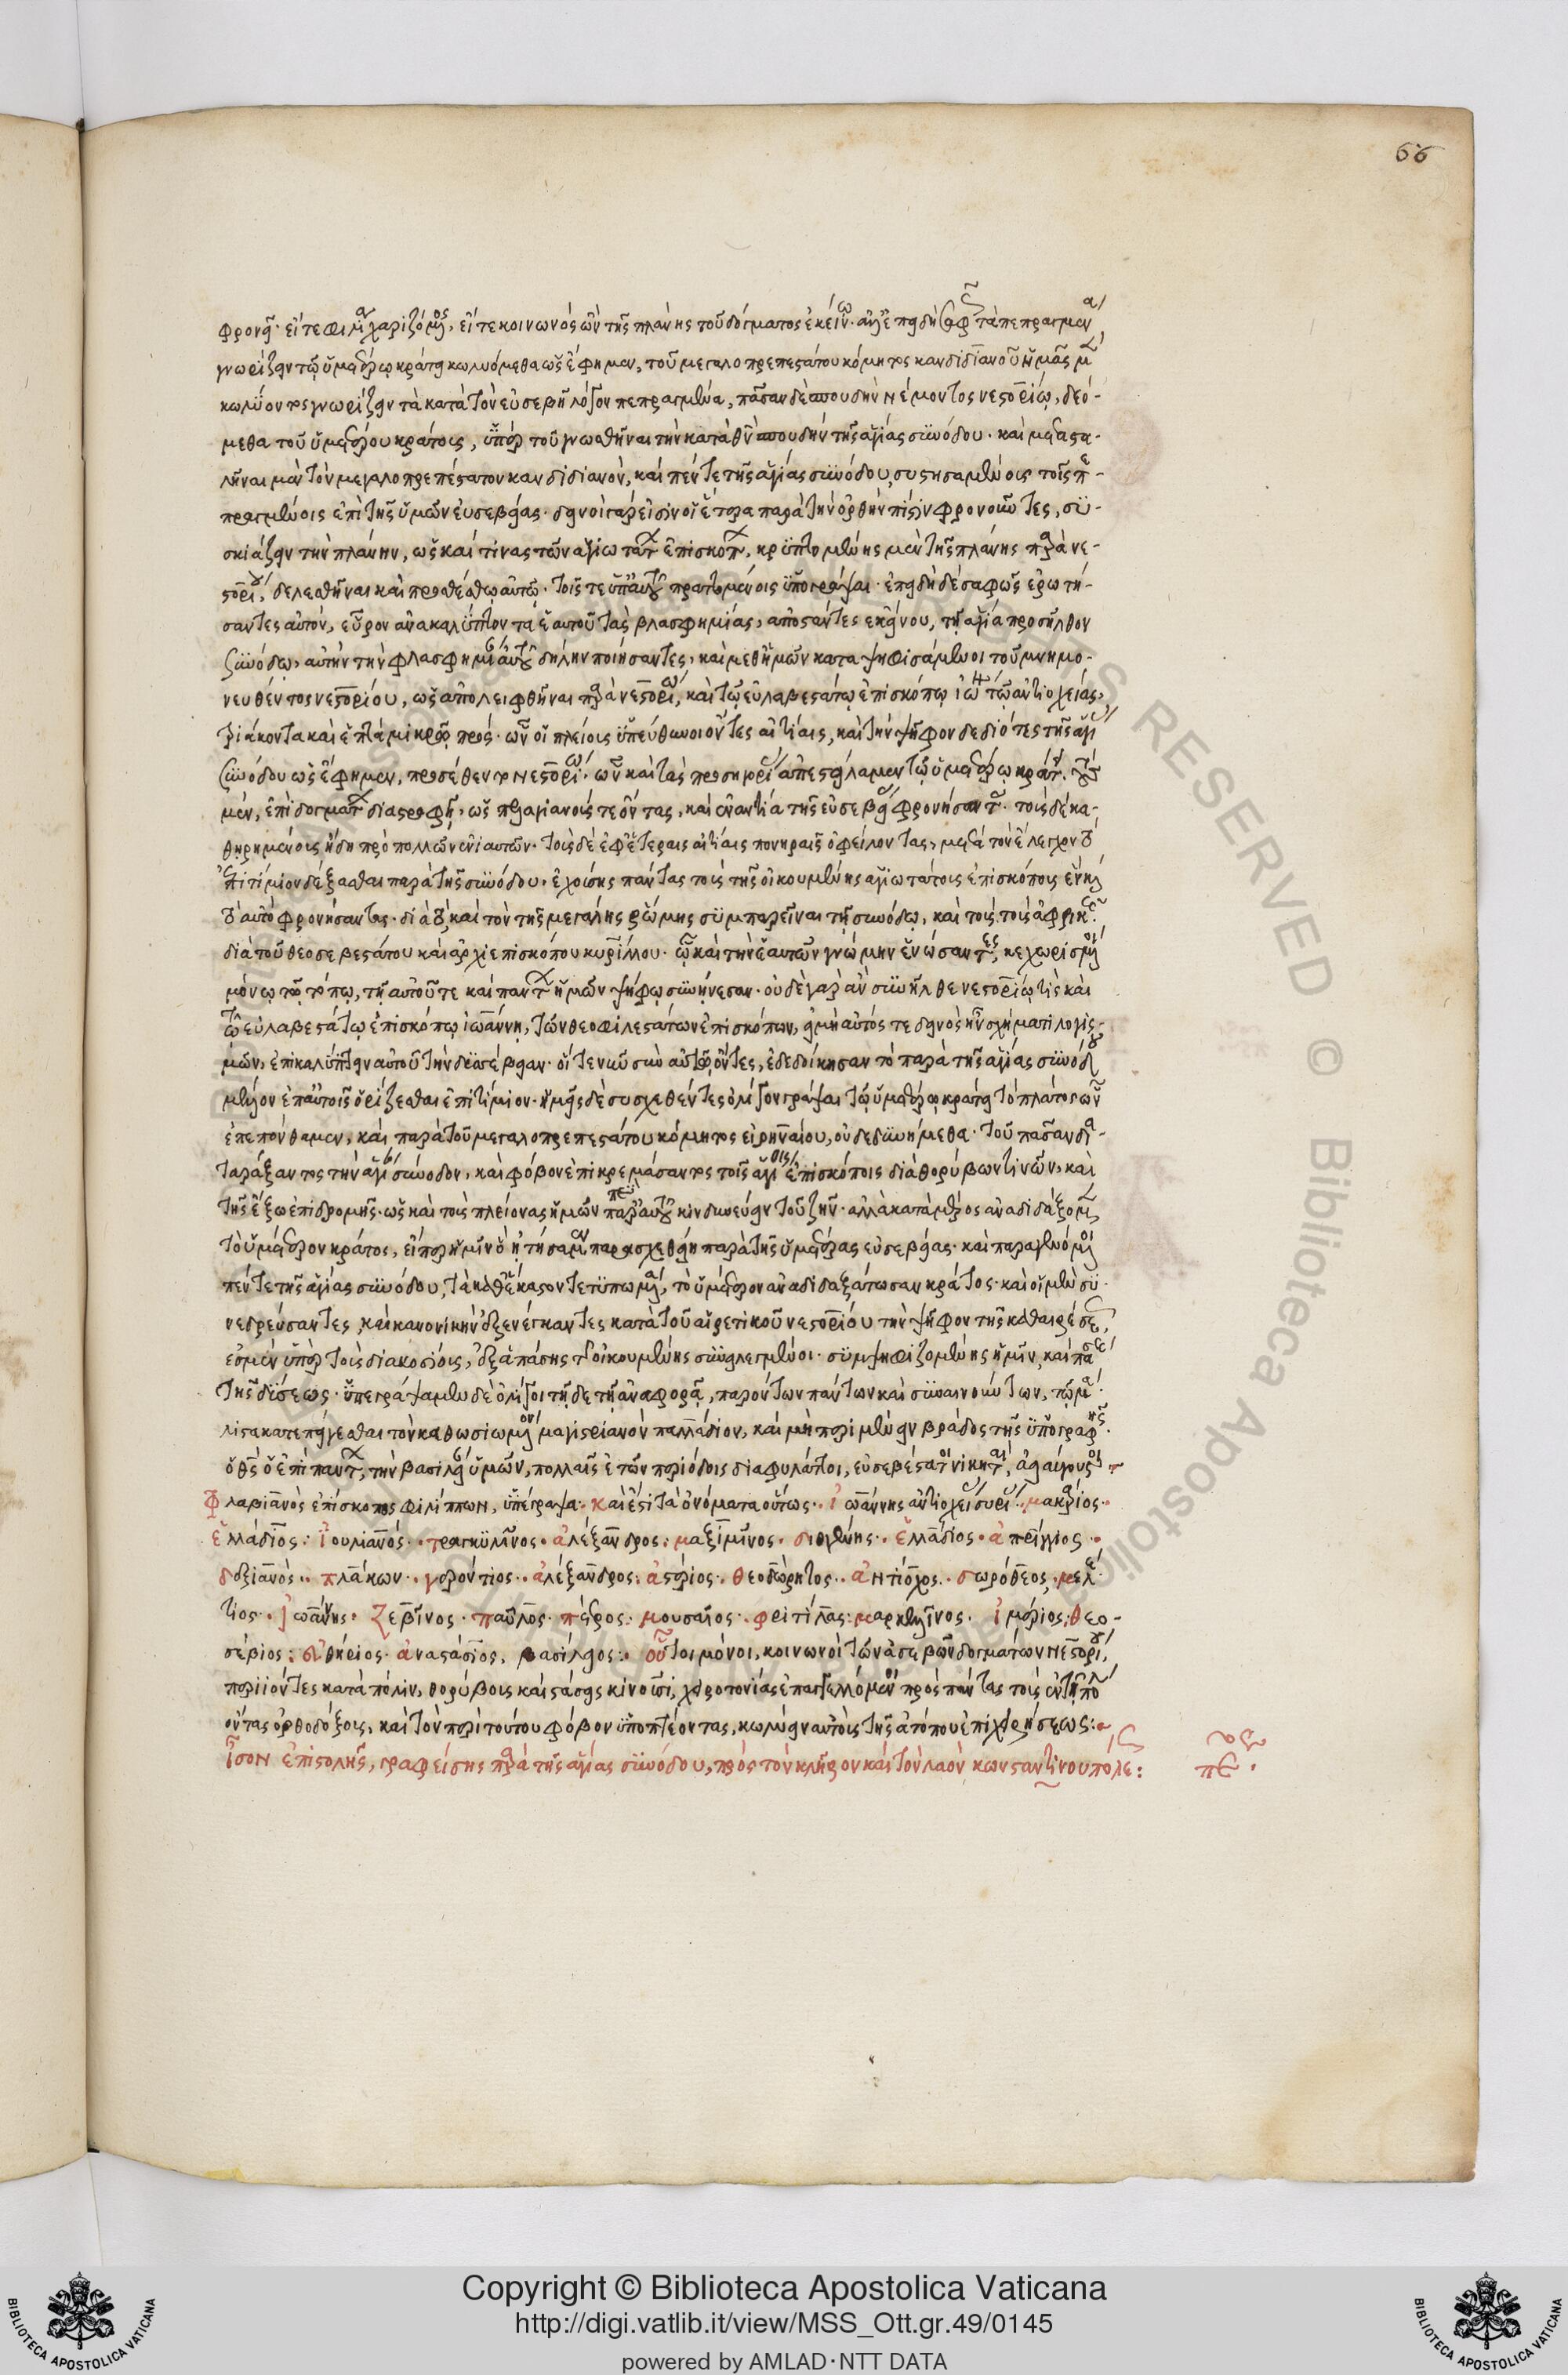 66
φρονεῖ· εἴτε φιλίαν χαριζόμενος, εἴτε κοινωνὸς ὢν τῆς πλάνης τοῦ δόγματος ἐκείνω· ἀλλ' ἐπειδὴ σαφῶς τὰ πεπραγμένα
γνωρίζειν τῷ ὑμετέρῳ κράτει κωλυόμεθα ὡς ἔφημεν, τοῦ μεγαλοπρεπεστάτου κόμητος κανδιδιανοῦ ἡμᾶς μὲν
κωλύοντος γνωρίζειν τὰ κατὰ τὸν εὐσεβῆ λόγον πεπραγμένα, πᾶσαν δὲ σπουδὴν νέμοντος νεστορίῳ, δεό-
μεθα τοῦ ὑμετέρου κράτους, ὑπὲρ τοῦ γνωσθῆναι τὴν κατὰ θεὸν σπουδὴν τῆς ἁγίας συνόδου· καὶ μεταστα-
λῆναι μὲν τὸν μεγαλοπρεπέστατον κανδιδιανὸν, καὶ πέντε τῆς ἁγίας συνόδου, συστησαμένους τοῖς πε-
πραγμένοις ἐπὶ τῆς ὑμῶν εὐσεβείας· δεινοὶ γάρ εἰσιν οἱ ἕτερα παρὰ τὴν ὀρθὴν πίστιν φρονοῦντες, συ-
σκιάζειν τὴν πλάνην, ὡς καί τινας τῶν ἁγιωτάτων ἐπισκόπων, κρυπτομένης μὲν τῆς πλάνης παρὰ νε-
στορίου, δελεασθῆναι καὶ προσθέσθαι αὐτῷ· τοῖς τε ὑπ' αὐτοῦ πραττομένοις ὑπογράψαι· ἐπειδὴ δὲ σαφῶς ἐρωτή-
σαντες αὐτόν, εὗρον ἀνακαλύπτοντα ἑαυτοῦ τὰς βλασφημίας, ἀποστάντες ἐκείνου, τῇ ἁγίᾳ προσῆλθον
συνόδῳ, αὐτὴν τὴν φλασφημίαν αὐτοῦ δήλην ποιήσαντες, καὶ μεθ' ἡμῶν καταψηφισάμενοι τοῦ μνημο-
νευθέντος νεστορίου, ὡς ἀπολειφθῆναι παρὰ νεστορίω, καὶ τῷ εὐλαβεστάτῳ ἐπισκόπῳ ἰωάννῃ τῷ ἀντιοχείας,
τριάκοντα καὶ ἑπτὰ μικρῷ πρός· ὧν οἱ πλείους ὑπεύθυνοι ὄντες αἰτίαις, καὶ τὴν ψῆφον δεδιότες τῆς ἁγίας
συνόδου ὡς ἔφημεν, προσέθεντο νεστορίῳ· ὧν καὶ τὰς προσηγορίας ἀπεστείλαμεν τῷ ὑμετέρῳ κράτει· τοὺς
μὲν, ἐπὶ δογμάτων διαστροφῇ, ὡς πελαγιανούς τε ὄντας, καὶ ἐναντία τῆς εὐσεβείας φρονήσαντας· τοὺς δὲ κα-
θῃρημένους ἤδη πρὸ πολλῶν ἐνιαυτῶν· τοὺς δὲ ἐφ' ἑτέραις αἰτίαις πονηραῖς ὀφείλοντας, μετὰ τὸν ἔλεγχον τὸ
ἐπιτίμιον δέξασθαι παρὰ τῆς συνόδου· ἐχούσης πάντας τοὺς τῆς οἰκουμένης ἁγιωτάτους ἐπισκόπους ἕν καὶ
τὸ αὐτὸ φρονήσαντας· διὰ τὸ καὶ τὸν τῆς μεγάλης ῥώμης συμπαρεῖναι τῇ συνόδῳ, καὶ τοὺς τοὺς ἀφρικῆς
διὰ τοῦ θεοσεβεστάτου καὶ ἀρχιεπισκόπου κυρίλλου· ᾧ καὶ τὴν ἑαυτῶν γνώμην ἑνώσαντες, κεχωρισμένοι
μόνῳ τῷ τόπῳ, τῇ αὐτοῦ τε καὶ πάντων ἡμῶν ψήφῳ συνῄνεσαν· οὐδὲ γὰρ ἂν συνῆλθε νεστορίῳ τὶς καὶ
τῷ εὐλαβεστάτῳ ἐπισκόπῳ ἰωάννῃ, τῶν θεοφιλεστάτων ἐπισκόπων, εἰ μὴ αὐτός τε δεινὸς ἦν σχηματι λογις-
μῶν, ἐπικαλύπτειν αὐτοῦ τὴν δυσσέβειαν· οἵ τε νῦν σὺν αὐτῷ ὄντες, ἐδεδοίκησαν τὸ παρὰ τῆς ἁγίας συνόδου
μέλλον ἐπ' αὐτοῖς ὁρίζεσθαι ἐπιτίμιον· ἡμεῖς δὲ συσχεθέντες ὀλίγον γράψαι τῷ ὑμετέρῳ κράτει τὸ πλάτος ὧν
ἐπεπόνθαμεν, καὶ παρὰ τοῦ μεγαλοπρεπεστάτου κόμητος εἰρηναίου, οὐ δεδυνήμεθα· τοῦ πᾶσαν δια-
ταράξαντος τὴν ἁγίαν σύνοδον, καὶ φόβον ἐπικρεμάσαντος τοῖς ἁγίοις ἐπισκόποις διὰ θορύβων τινῶν, καὶ
τῆς ἔξω ἐπιδρομῆς· ὡς καὶ τοὺς πλείονας ἡμῶν περὶ αὐτοῦ κινδυνεύειν τοῦ ζῆν· ἀλλὰ κατὰ μέρος ἀναδιδάξομεν
τὸ ὑμέτερον κράτος, εἴπερ ἡμῖν ὃ ᾐτήσαμεν παρασχεθείη παρὰ τῆς ὑμετέρας εὐσεβείας· καὶ παραγενόμενοι
πέντε τῆς ἁγίας συνόδου, τὰ καθ' ἕκαστον τετυπωμένα, τὸ ὑμέτερον ἀναδιδαξάτωσαν κράτος· καὶ οἱ μὲν συ-
νεδρεύσαντες, καὶ κανονικὴν ἐξενέγκαντες κατὰ τοῦ αἱρετικοῦ νεστορίου τὴν ψῆφον τῆς καθαιρέσεως,
ἐσμὲν ὑπὲρ τοὺς διακοσίους, ἐξ ἁπάσης τῆς οἰκουμένης συνειλεγμένοι· συμψηφιζομένης ἡμῖν, καὶ πάσης
τῆς δύσεως· ὑπεγράψαμεν δὲ ὀλίγοι τῇδε τῇ ἀναφορᾷ, παρόντων πάντων καὶ συναινούντων, τῷ μά-
λιστα κατεπείγεσθαι τὸν καθωσιωμένον μαγιστριανὸν παλλάδιον, καὶ μὴ περιμένειν βράδος τῆς ὑπογραφῆς·
ὁ θεὸς ὁ ἐπὶ πάντων, τὴν βασιλείαν ὑμῶν, πολλαῖς ἐτῶν περιόδοις διαφυλάττοι, εὐσεβέστατοι νικηταὶ, ἀεὶ αὔγουστοι
Φλαβιανὸς ἐπίσκοπος φιλίππων, ὑπέγραψα· καὶ ἔστι τὰ ὀνόματα οὕτως· ἰωάννης ἀντιοχείας συρίας· μακάριος·
ἑλλάδιος: ἰουλιανός· τραγκυλῖνος· ἀλέξανδρος: μαξιμῖνος· διογένης· ἑλλάδιος· ἀπρίγγιος·
δεξιανός· πλάκων· γερόντιος· ἀλέξανδρος: ἀστέριος· θεοδώρητος· ἀντίοχος· δωρόθεος, μελέ-
τιος· ἰωάννης· Ζεβῖνος· παῦλος· πέτρος: μουσαῖος· φριτίλας: μαρκελλῖνος· ἱμέριος: θεο-
σέβιος: εὐθήριος· ἀναστάσιος, βασίλειος: οὗτοι μόνοι, κοινωνοὶ τῶν ἀσεβῶν δογμάτων νεστορίου,
περιιόντες κατὰ πόλιν, θορύβους καὶ στάσεις κινοῦσι, χειροτονίας ἐπαγγελλόμενοι πρὸς πάντας τοὺς ἐν τῇ πόλει
ὄντας ὀρθοδόξους, καὶ τὸν περὶ τούτου φόβον ὑποπτέοντας, κωλύειν αὐτοὺς τῆς ἀτόπου ἐπιχειρήσεως:
ἴσον ἐπιστολῆς, γραφείσης παρὰ τῆς ἁγίας συνόδου, πρὸς τὸν κλῆρον καὶ τὸν λαὸν κωνσταντινουπόλεως:
Copyright © Biblioteca Apostolica Vaticana
http://digi.vatlib.it/view/MSS_Ott.gr.49/0145
powered by AMLAD·NTT DATA
BIBLIOTECA APOSTOLICA VATICANA
BIBLIOTECA APOSTOLICA VATICANA